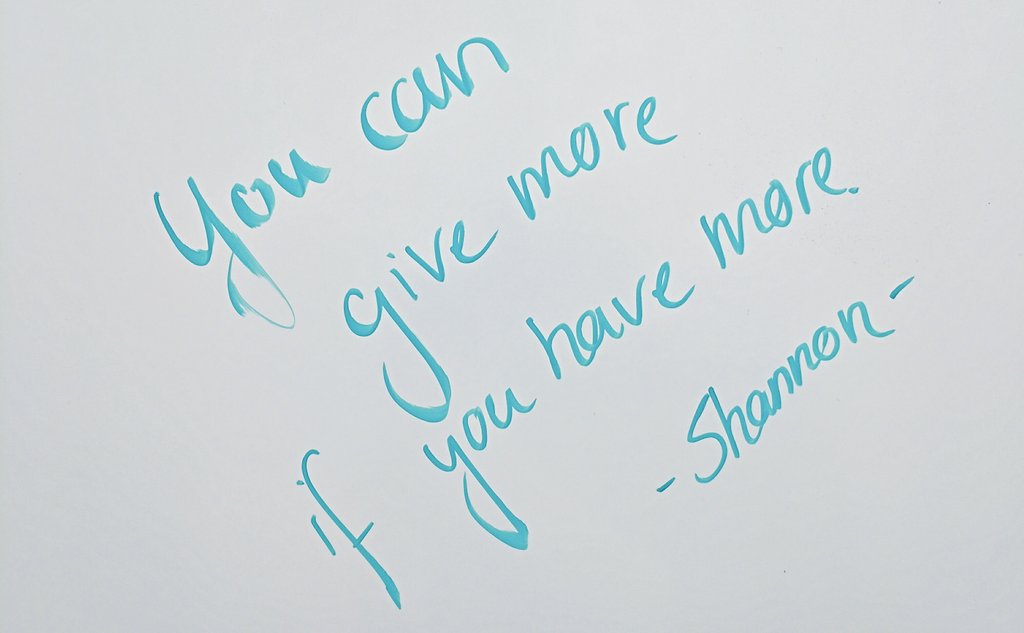 You can
give more
if you have more.
-Shannon-